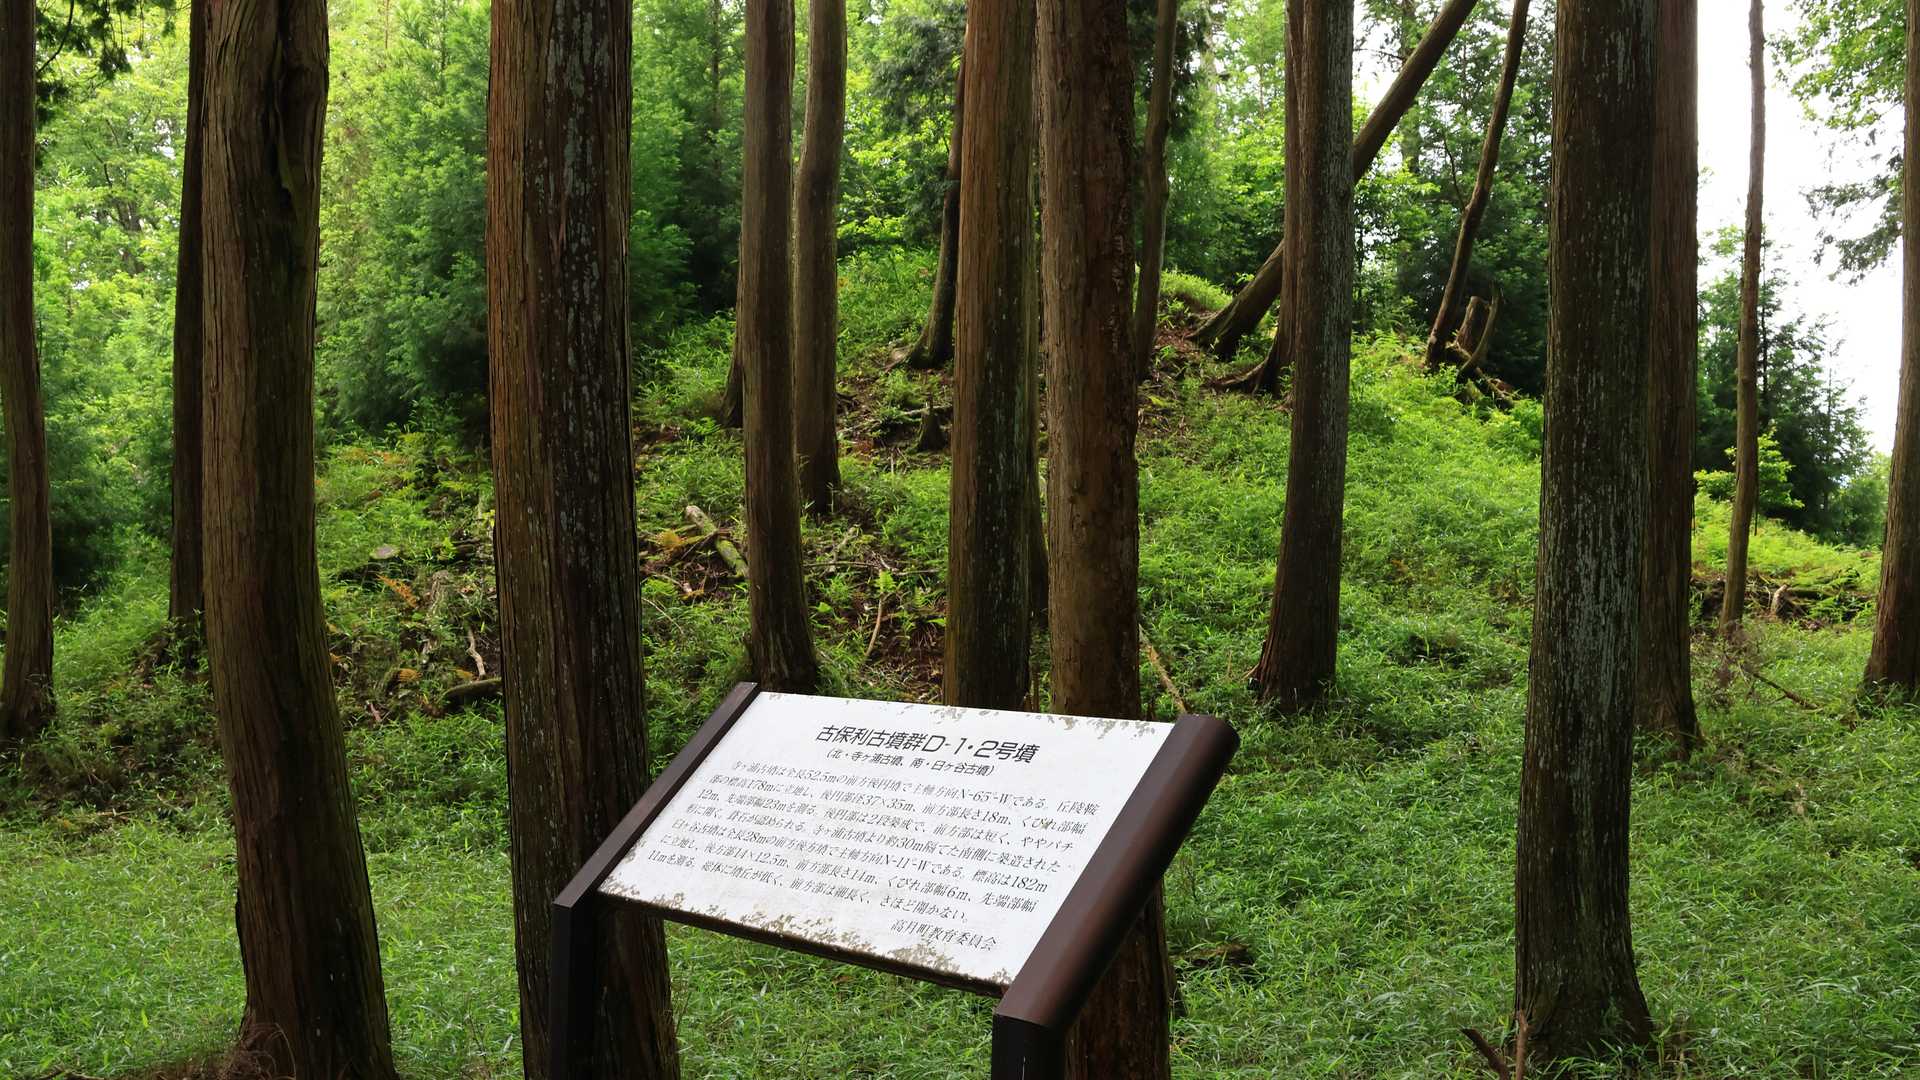 古保利古墳群D-1・2号墳
(北・寺ヶ浦古墳、南・日ヶ谷古墳)
寺ヶ浦古墳は全長52.5mの前方後円墳で主軸方向N-65°-Wである。丘陵鞍
部の標高178mに立地し、後円部径37×35m、前方部長さ18m、くびれ部幅
12m、先端部幅23mを測る。後円部は2段築成で、前方部は短く、ややバチ
形に開く。葺石が認められる。寺ヶ浦古墳より約30m隔てた南側に築造された
日ヶ谷古墳は全長28mの前方後方墳で主軸方向N-11°-Wである。標高は182m
に立地し、後方部14×12.5m、前方部長さ14m、くびれ部幅6m、先端部幅
11mを測る。総体に墳丘が低く、前方部は細長く、さほど開かない。
高月町教育委員会